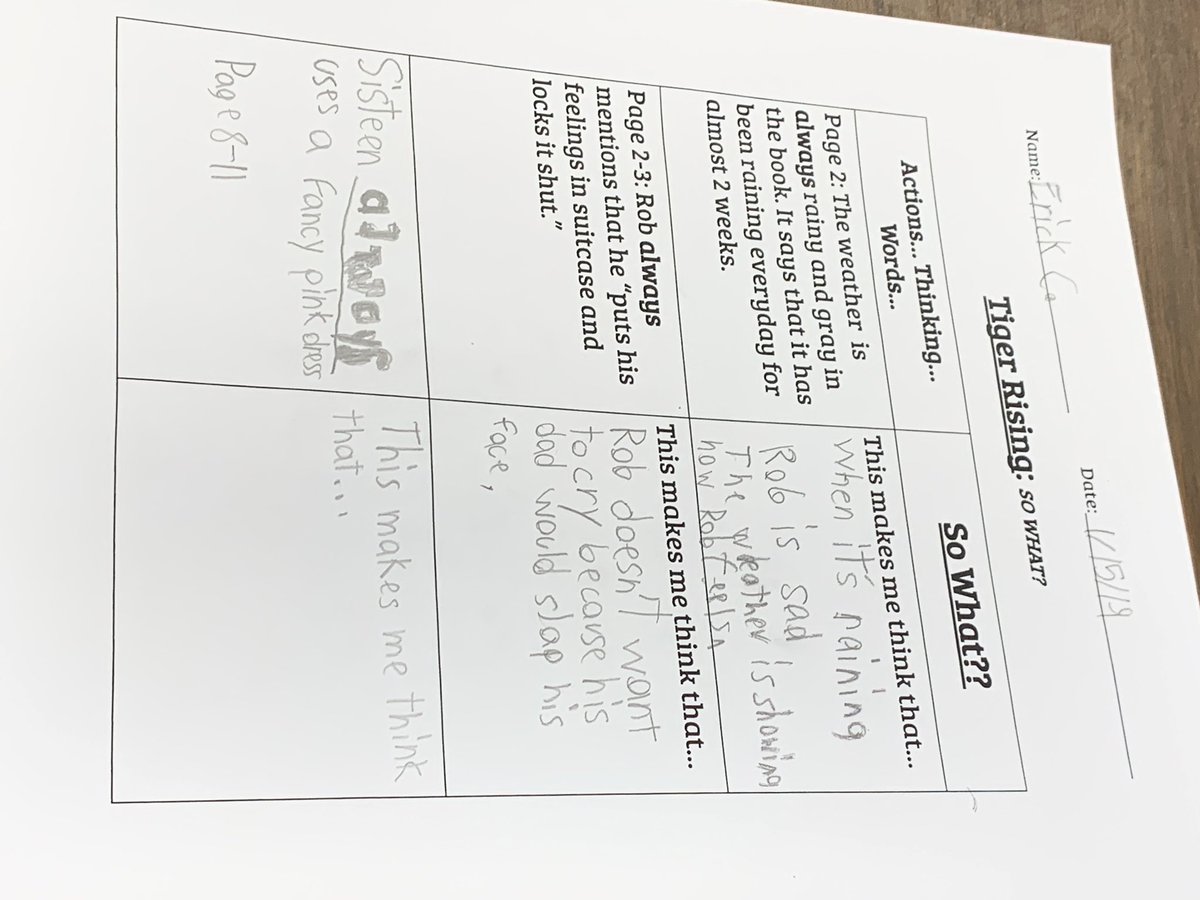 Name: Erick C.
Date: 11/5/19
Tiger Rising: SO WHAT?
Actions... Thinking...
Words...
So What??
Page 2: The weather is
always rainy and gray in
the book. It says that it has
been raining everyday for
almost 2 weeks.
This makes me think that...
when it's raining
Rob is sad
The wheather is showing
how Rob feels
Page 2-3: Rob always
mentions that he "puts his
feelings in suitcase and
locks it shut."
This makes me think that...
Rob doesn't want
to cry because his
dad would slap his
face,
Sisteen always
uses a fancy pink dress
Page 8-11
This makes me think
that...